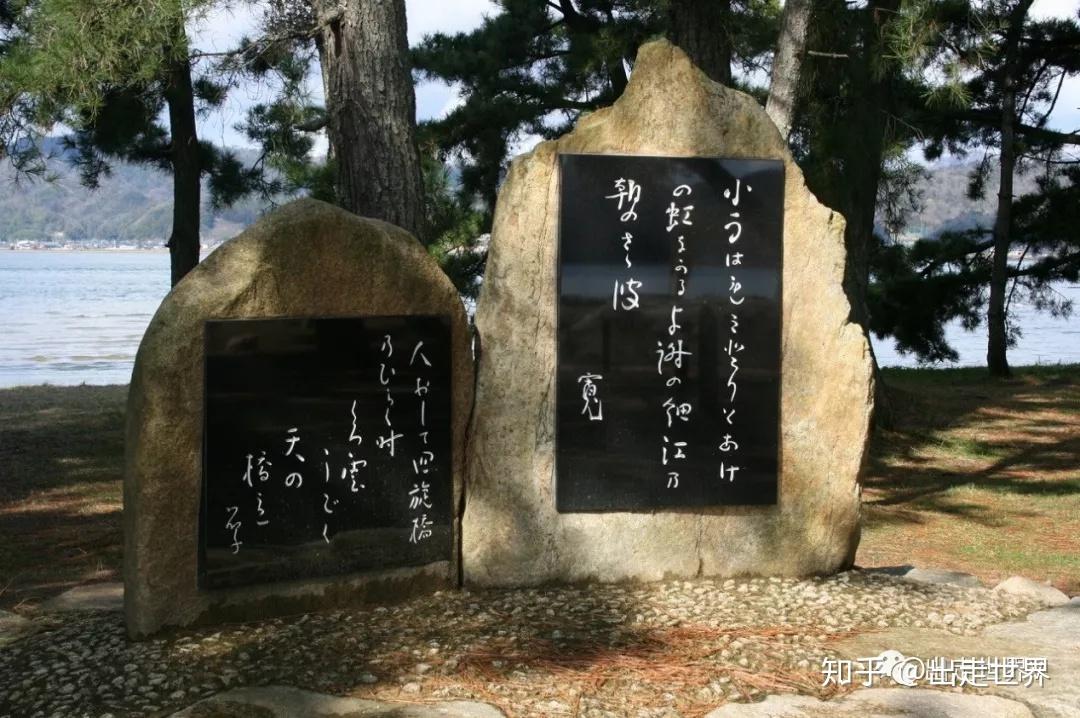 小雨はれみどりとあけ
の虹なかるよ謝の細江乃
朝のさゝ波
寛
人おして回旋橋
乃ひらく時
くろ雲
うごく
天の
橋立
晶子
知乎 @出走世界